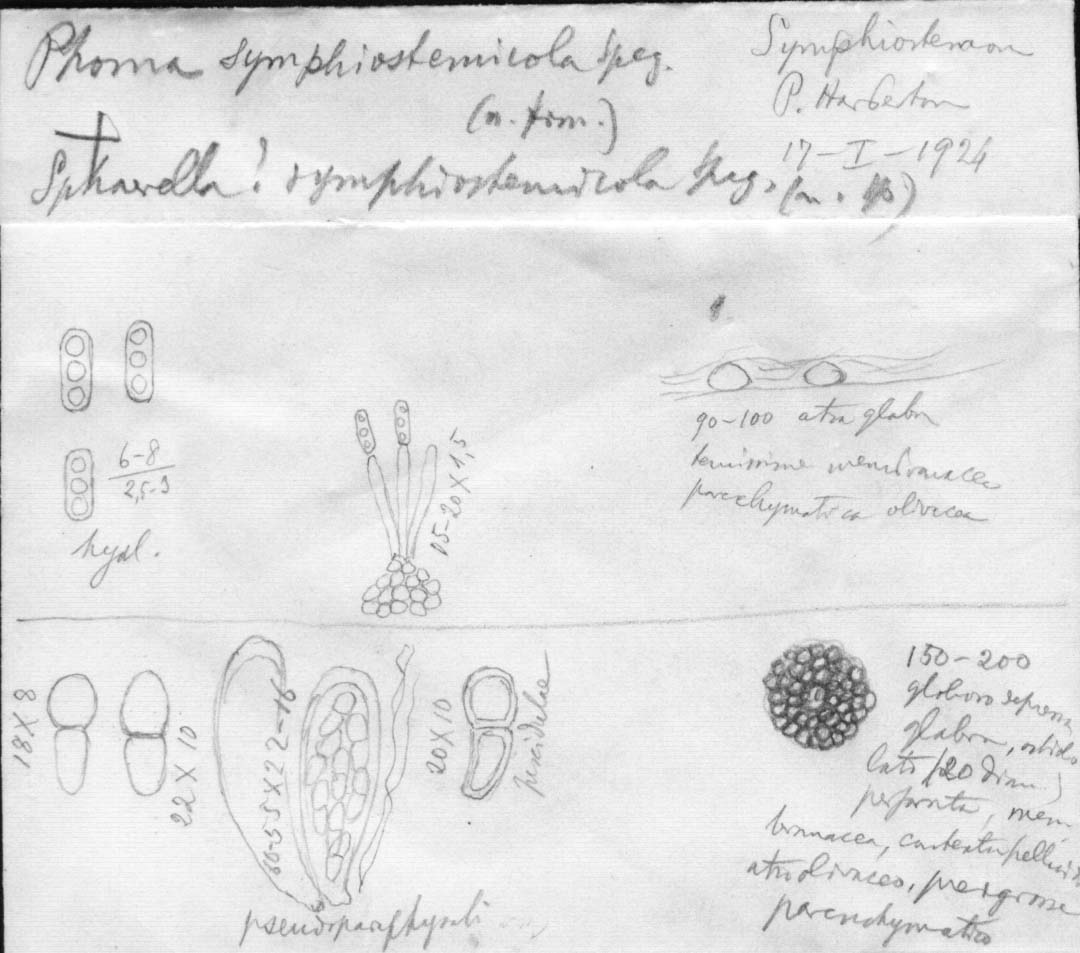 Phoma symphiostemicola Speg.
(n. fom.)
Symphiostemon
P. Harberton
17-I-1924
Sphaerella? symphiostemicola Speg. (n. sp)
6-8
2,5-3
hyal.
15-20 X 1,5
90-100 atra glabra
tenuissime membranacea
parechymatica olivacea
18 X 8
22 X 10
60-55 X 22-16
20 X 10
pseudoparaphysati
150-200
globoso depressa
glabra, ostiolo
lato (20 diam.)
perforata, mem-
branacea, contextu pellucido
atroolivaceo, pergrosse
parenchymatico